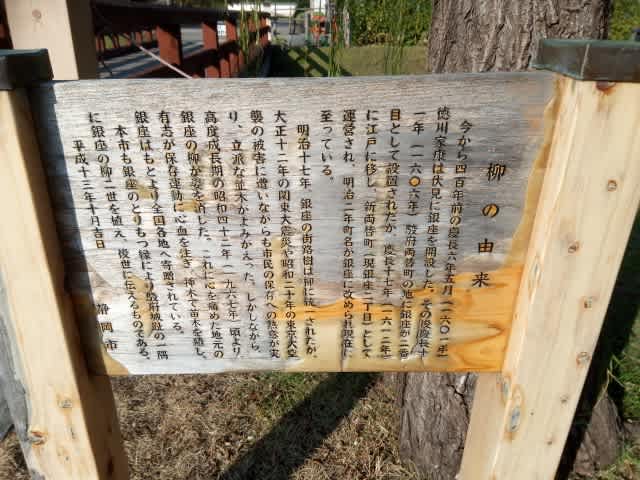 柳の由来
今から四百年前の慶長六年五月(一六〇一年)
徳川家康は伏見に銀座を開設した。その後慶長十
一年(一六〇六年)駿府両替町の地に銀座が二番
目として設置されたが、慶長十七年(一六一二年)
に江戸に移し、新両替町(現銀座二丁目)として
運営され、明治二年町名が銀座に改められ現在に
至っている。
明治十七年、銀座の街路樹は柳に統一されたが、
大正十二年の関東大震災や昭和二十年の東京大空
襲の被害に遭いながらも市民の保有への熱意が実
り、立派な並木がよみがえった。しかしながら、
高度成長期の昭和四十二年(一九六七年)頃より、
銀座の柳が姿を消した。これに心を痛めた地元の
有志が保存運動に心血を注ぎ、挿木で苗木を殖し、
銀座はもとより全国各地へ寄贈されている。
本市も銀座のとりもつ縁により駿府城趾の一隅
に銀座の柳二世を植え、後世に伝えるものである。
平成十三年十月吉日
静岡市